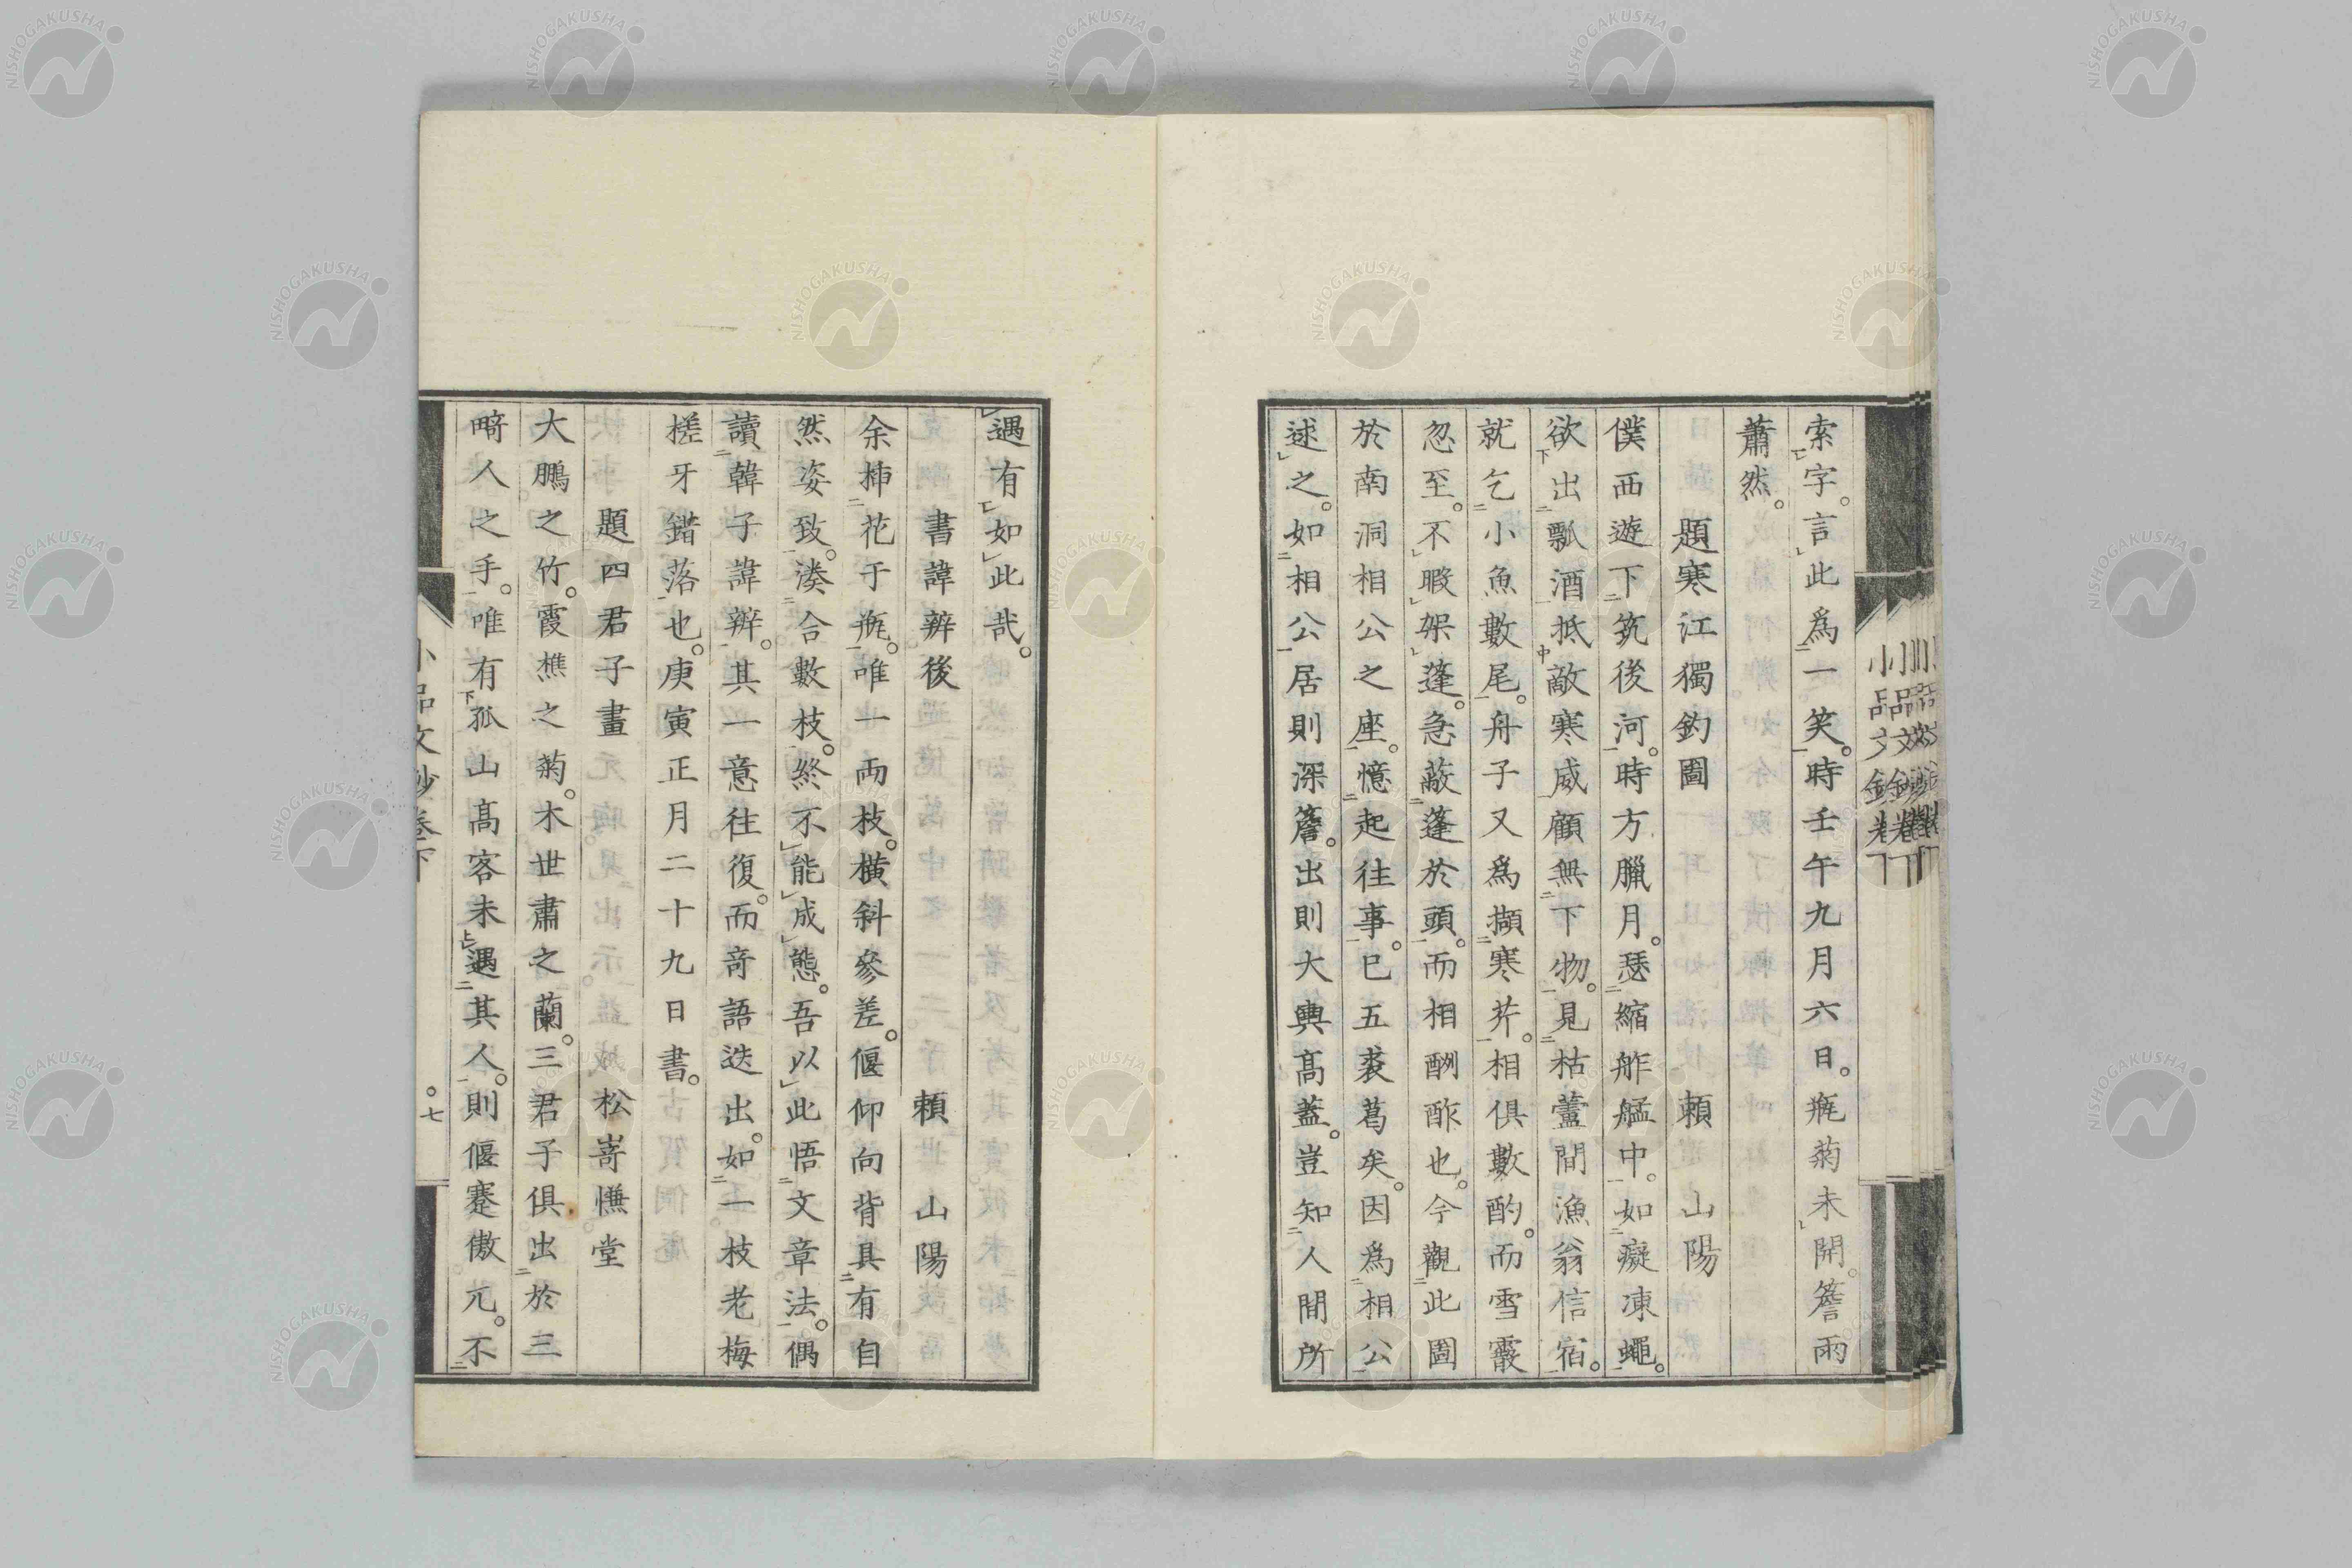 索字。言此爲一笑。時壬午九月六日。瓶菊未開。簷雨
蕭然。
題寒江獨釣圖　賴山陽
僕西遊下筑後河。時方臘月。瑟縮舴艋中。如癡凍蠅。
欲出瓢酒抵敵寒威顧無下物。見枯蘆間漁翁信宿。
就乞小魚數尾。舟子又爲擷寒芥。相俱數酌。而雪霰
忽至。不暇架蓬。急蔽蓬於頭。而相酬酢也。今觀此圖
於南洞相公之座。憶起往事。已五裘葛矣。因爲相公
述之。如相公居則深簷。出則大輿高蓋。豈知人間所
遇有如此哉。
書諱辨後　賴山陽
余挿花于瓶。唯一兩枝。橫斜參差。偃仰向背具有自
然姿致。湊合數枝。終不能成態。吾以此悟文章法。偶
讀韓子諱辨。其一意往復。而奇語迭出。如一枝老梅
槎牙錯落也。庚寅正月二十九日書。
題四君子畫　松嵜慊堂
大鵬之竹。霞樵之菊。木世肅之蘭。三君子俱出於三
畸人之手。唯有孤山高客未遇其人。則偃蹇傲兀。不
小品文鈔卷下
七
NISHOGAKUSHA